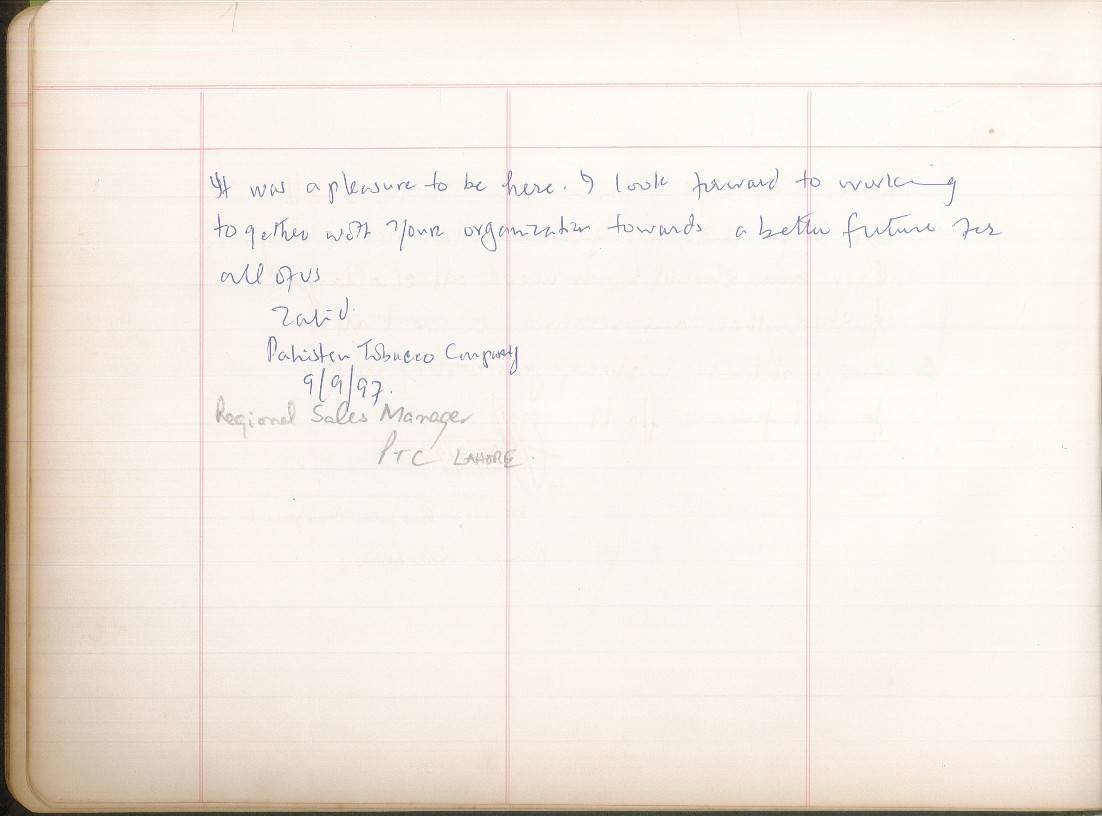 It was a pleasure to be here. I look forward to working
together with your organization towards a better future for
all of us
Zahid
Pakistan Tobacco Company
9/9/97.
Regional Sales Manager
PTC LAHORE.